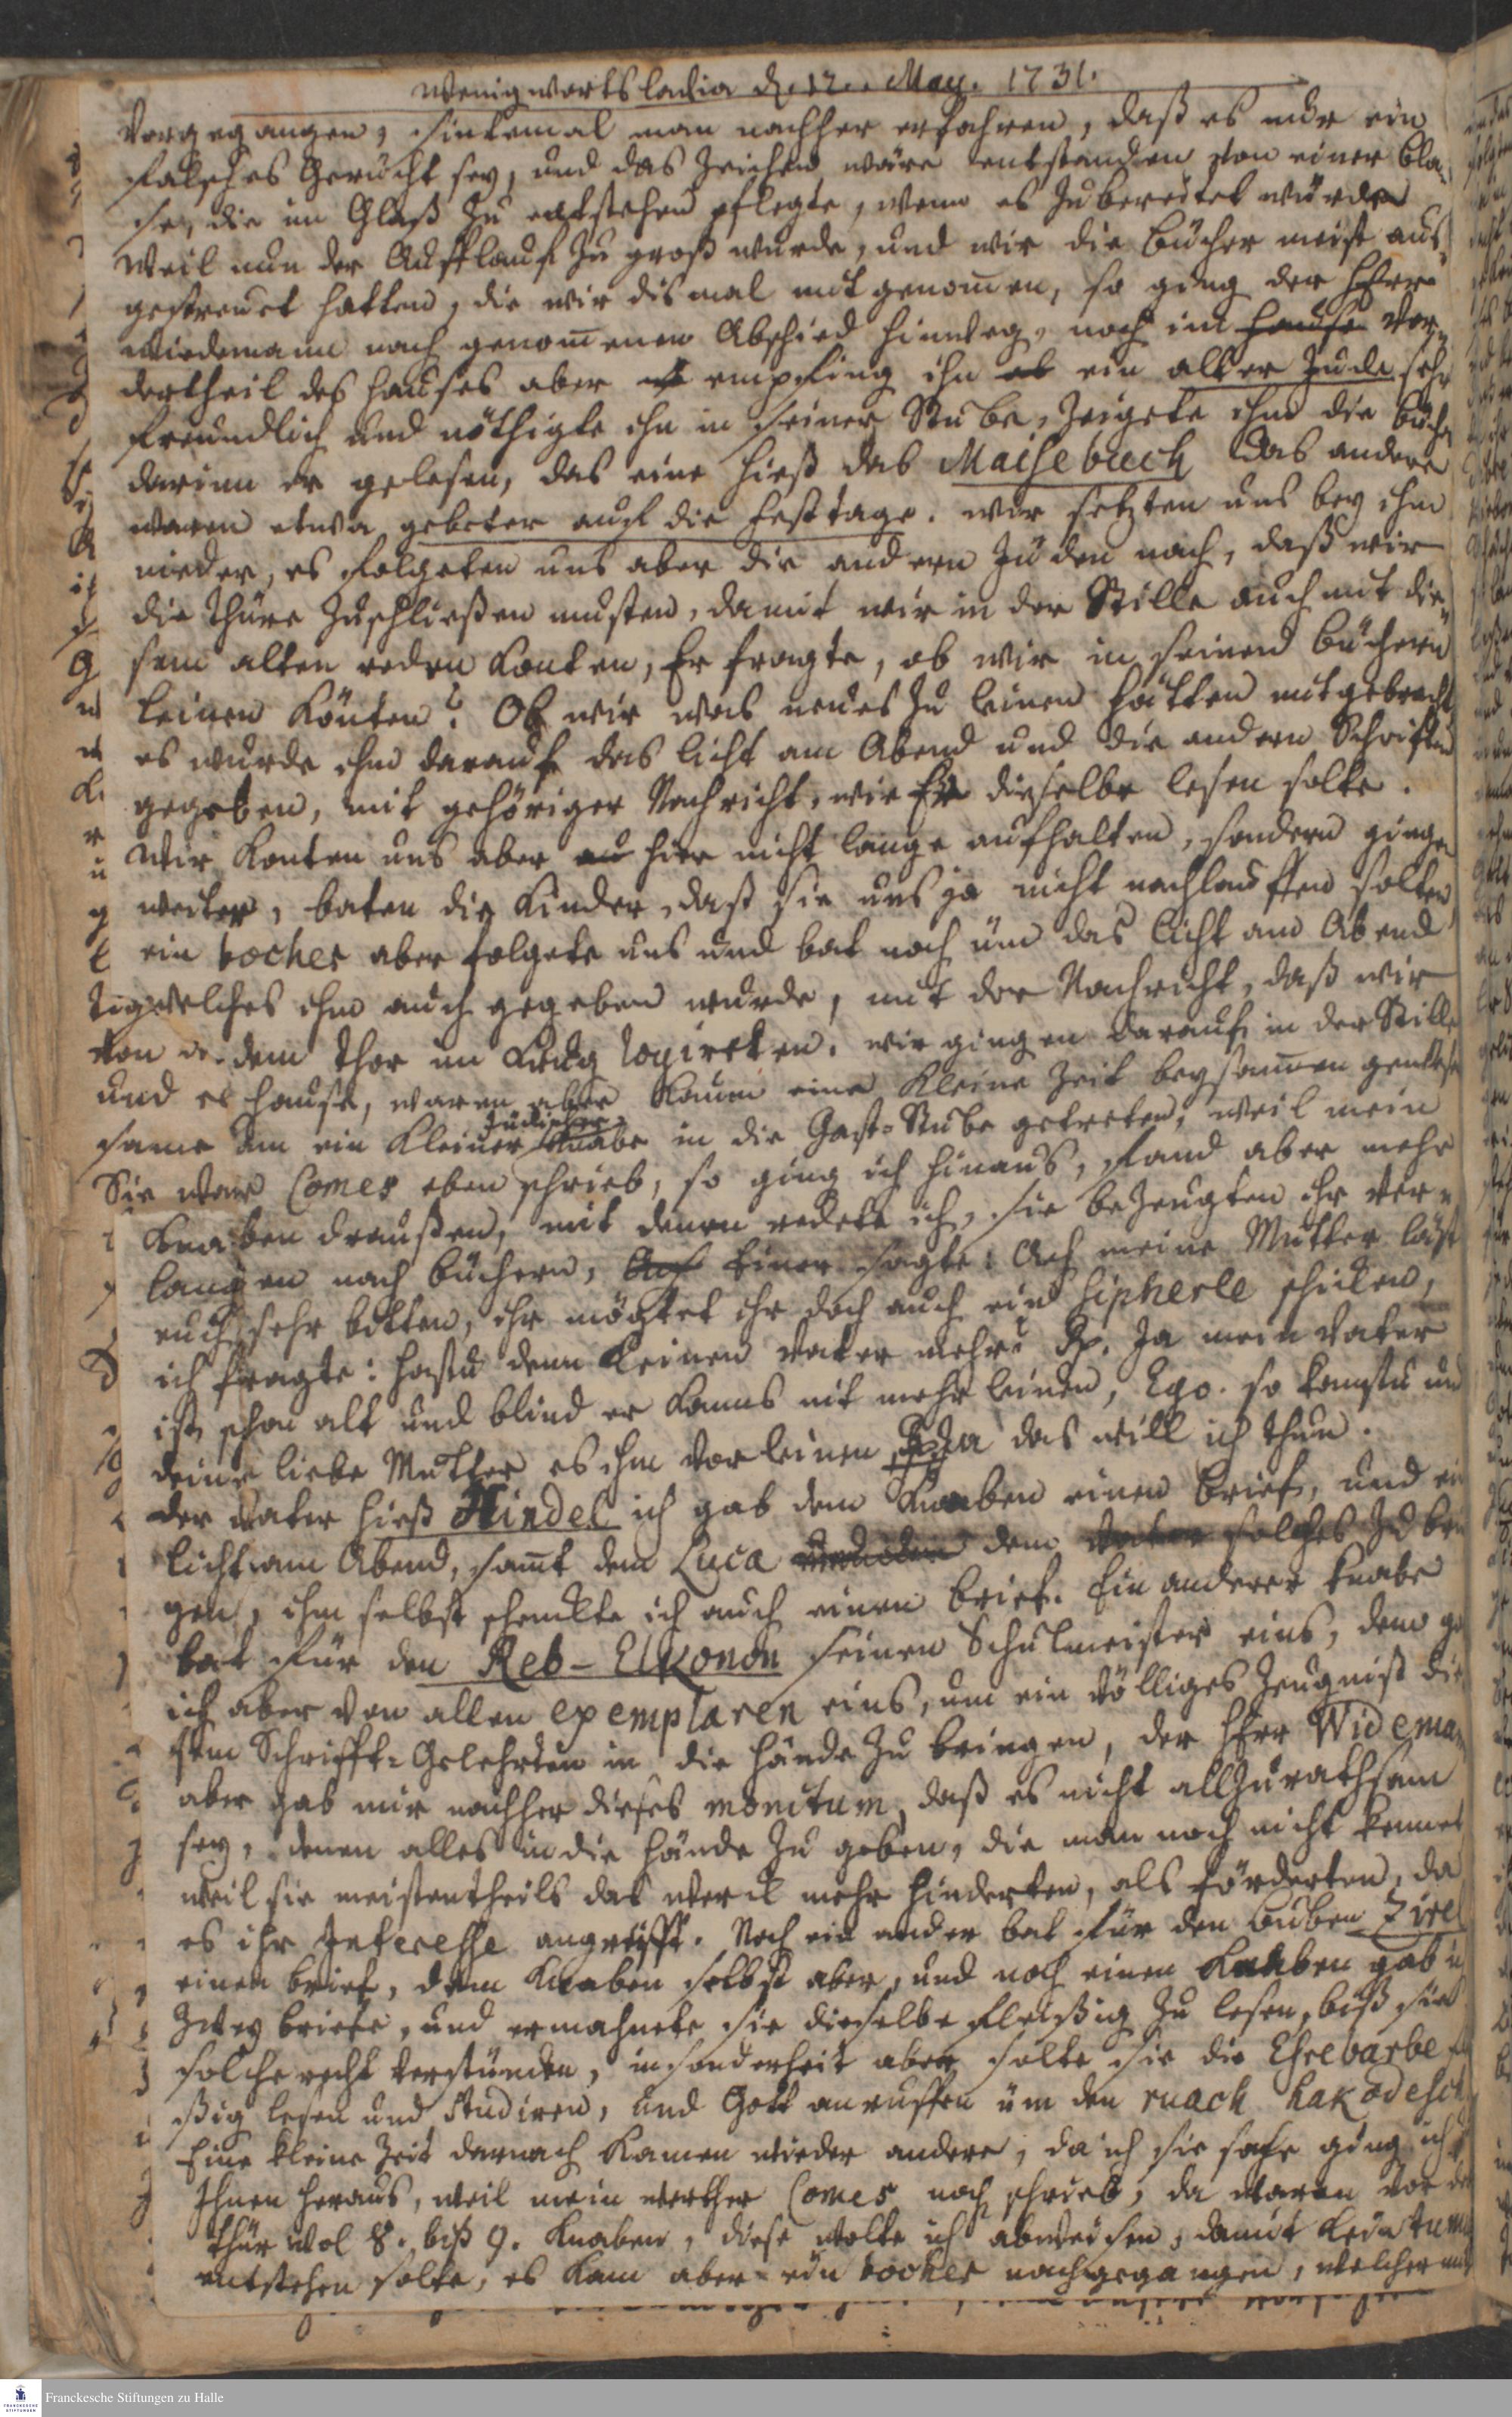 Wenigwortsladia d. 12. May. 1731.
vorgegangen, sintemal man nachher erfahren, daß es nur ein
falsches Gerücht sey, und das Zeichen wäre entstanden von einer Bla-
se, die im Glaß zu entstehen pflegte, wenn es zubereitet würde
Weil nun der Aufflauf zu groß wurde, und wir die Bücher meist aus-
gestreuet hatten, die wir dismal mitgenommen, so ging der Herr
Wiedemann nach genommenem Abschied hinweg, noch im hause Vor-
dertheil des Hauses aber empfing ihn ein alter Jude sehr
freundlich und nöthigte ihn in seiner Stube, zeigete ihm die Bücher
darinn er gelesen, das eine hieß das Maisebuch das andere
waren etwa gebeter auf die Festtage. wir setzten uns bey ihm
nieder, es folgeten uns aber die andern Juden nach, daß wir
die Thüre zuschließen musten, damit wir in der Stille auch mit die-
sem alten reden konten, Er fragte, ob wir in seinen Büchern
leinen könten? Ob wir was neues zu leinen hätten mitgebracht
es wurde ihm darauf das Licht am Abend und die andern Schriften
gegeben, mit gehöriger Nachricht, wie Er dieselbe lesen solte.
Wir konten uns aber hier nicht lange aufhalten, sondern gingen
weiter, baten die Kinder, daß sie uns ja nicht nachlauffen solten
ein bocher aber folgete uns und bat noch um das Licht am Abend
welches ihm auch gegeben wurde, mit der Nachricht, daß wir
von dem Thor im Krug logireten. wir gingen darauf in der Stille
und hause, waren aber kaum eine kleine Zeit beysammen
ein kleiner Jüdischer Knabe in die Gast-Stube getreten, weil mein
Comes eben schrieb, so ging ich hinaus, fand aber mehr
Knaben draußen, mit denen redete ich, sie bezeugten ihr Ver-
langen nach Büchern, Einer sagte: Ach meine Mutter läst
euch sehr bitten, ihr mögtet ihr doch auch ein Sipherle schicken,
ich fragte: hastu denn keinen Vater mehr? Rp. Ja mein Vater
ist schon alt und blind er kanns nit mehr leinen, Ego. so kanstu und
deine liebe Mutter es ihm vorleinen Rp. Ja das will ich thun.
der Vater hieß Hindel ich gab dem Knaben einen Brief, und ein
Licht am Abend, samt dem Luca dem solches zu brin
gen, ihm selbst schenkte ich auch einen Brief. Ein anderer Knabe
bat für den Reb-Elkonon seinen Schulmeister eins, dem
ich aber von allen exemplaren eins, um ein völliges Zeugniß die
sem Schrifft-Gelehrten in die Hände zu bringen, der Herr Wideman
aber gab mir nachher dieses monitum, daß es nicht allzurathsam
sey, denen alles in die Hände zu geben, die man noch nicht kennet
weil sie meistentheils das Werck mehr hinderten, als förderten, da
es ihr Interesse angreifft. Noch ein ander bat für den Buben Zirel
einen Brief, dem Knaben selbst aber, und noch einen Knaben gab
zwey Briefe, und ermahnete sie dieselbe fleißig zu lesen, biß sie
solche recht verstünden, insonderheit aber solte sie die Ehrevarbe
ßig lesen und studiren, und Gott anruffen um den ruach hakodesch
Eine kleine Zeit darnach kamen wieder andere, da ich sie sahe ging ich
Ihnen heraus, weil mein werther Comes noch schrieb, da waren vor der
Thür wol 8. biß 9. Knaben, diese wolte ich abweisen, damit kein tumu
entstehen solte, es kam aber ein bocher nachgegangen, welcher
Franckesche Stiftungen zu Halle